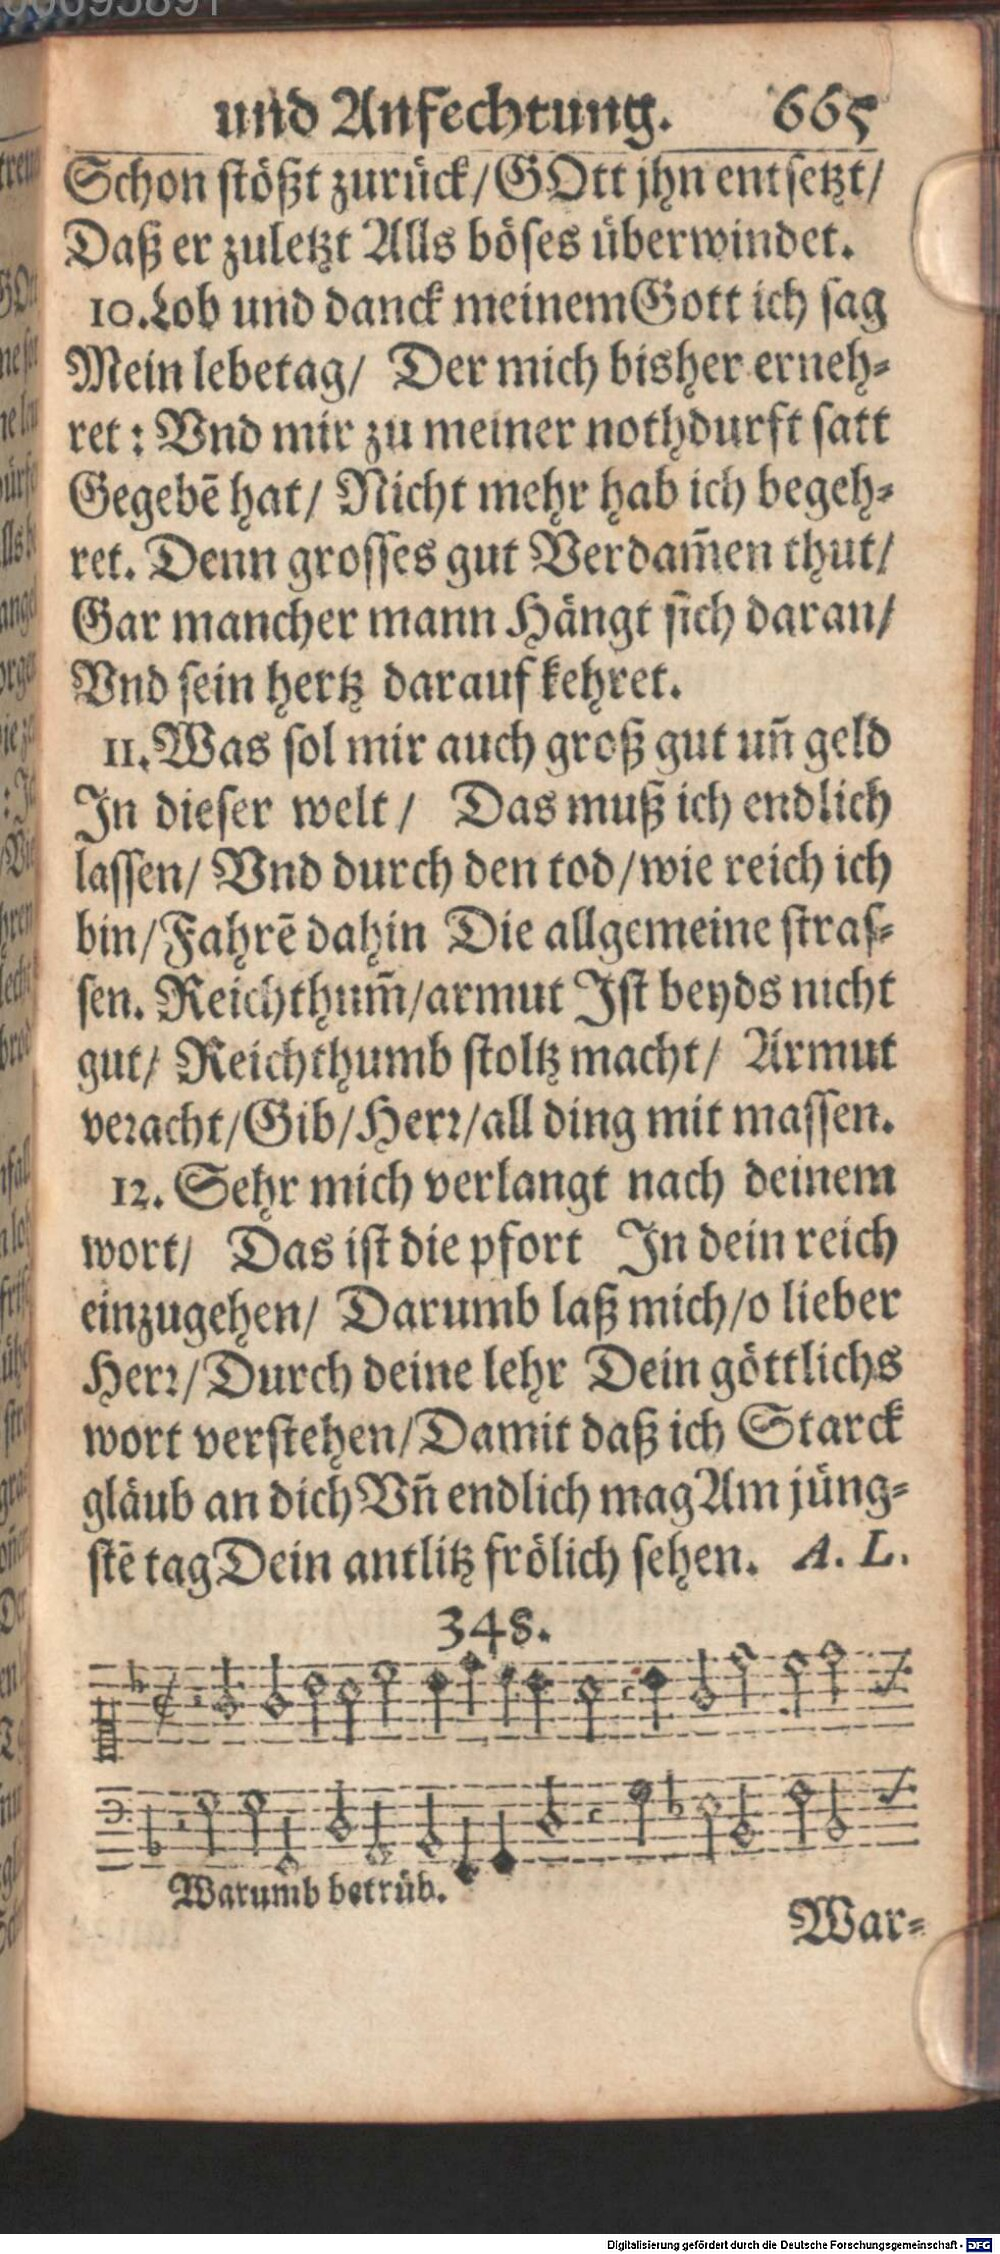 und Anfechtung. 665
Schon stößt zurück/GOtt jhn entsetzt/
Daß er zuletzt Alls böses überwindet.
10. Lob und danck meinem Gott ich sag
Mein lebetag/ Der mich bisher erneh-
ret: Vnd mir zu meiner nothdurft satt
Gegebẽ hat/ Nicht mehr hab ich begeh-
ret. Denn grosses gut Verdam̃en thut/
Gar mancher mann Hängt sich daran/
Vnd sein hertz darauf kehret.
11. Was sol mir auch groß gut uñ geld
In dieser welt/ Das muß ich endlich
lassen/ Vnd durch den tod/wie reich ich
bin/Fahrẽ dahin Die allgemeine stras-
sen. Reichthum̃/armut Ist beyds nicht
gut/ Reichthumb stoltz macht/ Armut
veracht/Gib/Herr/all ding mit massen.
12. Sehr mich verlangt nach deinem
wort/ Das ist die pfort In dein reich
einzugehen/ Darumb laß mich/o lieber
Herr/Durch deine lehr Dein göttlichs
wort verstehen/Damit daß ich Starck
gläub an dich Vñ endlich mag Am jüng-
stẽ tag Dein antlitz frölich sehen. A. L.
348.
Warumb betrüb.
War-
Digitalisierung gefördert durch die Deutsche Forschungsgemeinschaft - DFG